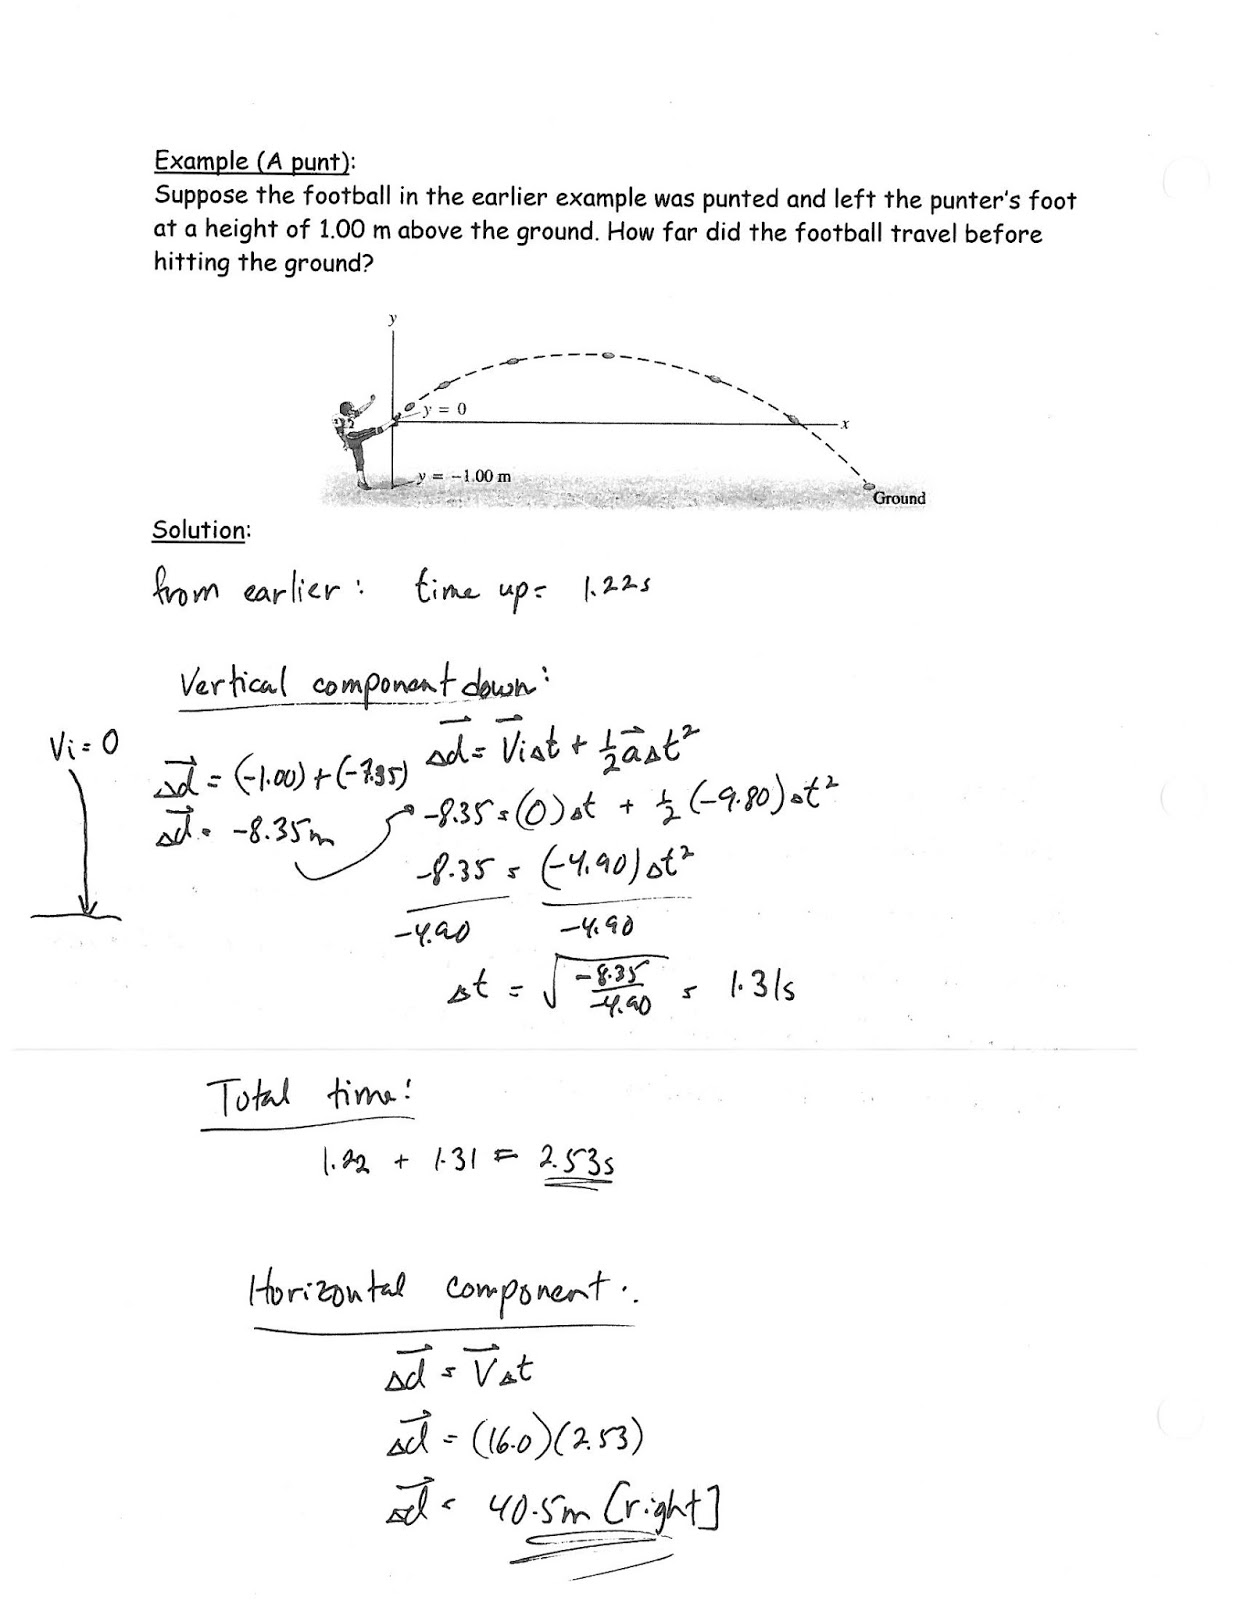 Example (A punt):
Suppose the football in the earlier example was punted and left the punter's foot
at a height of 1.00 m above the ground. How far did the football travel before
hitting the ground?
y
y = 0
x
y = −1.00 m
Ground
Solution:
from earlier: time up = 1.22s
Vertical component down:
Vi = 0
Δd = (-1.00) + (-7.35)
Δd = -8.35m
Δd = ViΔt + ½aΔt²
-8.35 = (0)Δt + ½(-9.80)Δt²
-8.35 = (-4.90)Δt²
-4.90 -4.90
Δt = √(-8.35/-4.90) = 1.31s
Total time:
1.22 + 1.31 = 2.53s
Horizontal component:
Δd = VΔt
Δd = (16.0)(2.53)
Δd = 40.5m [right]